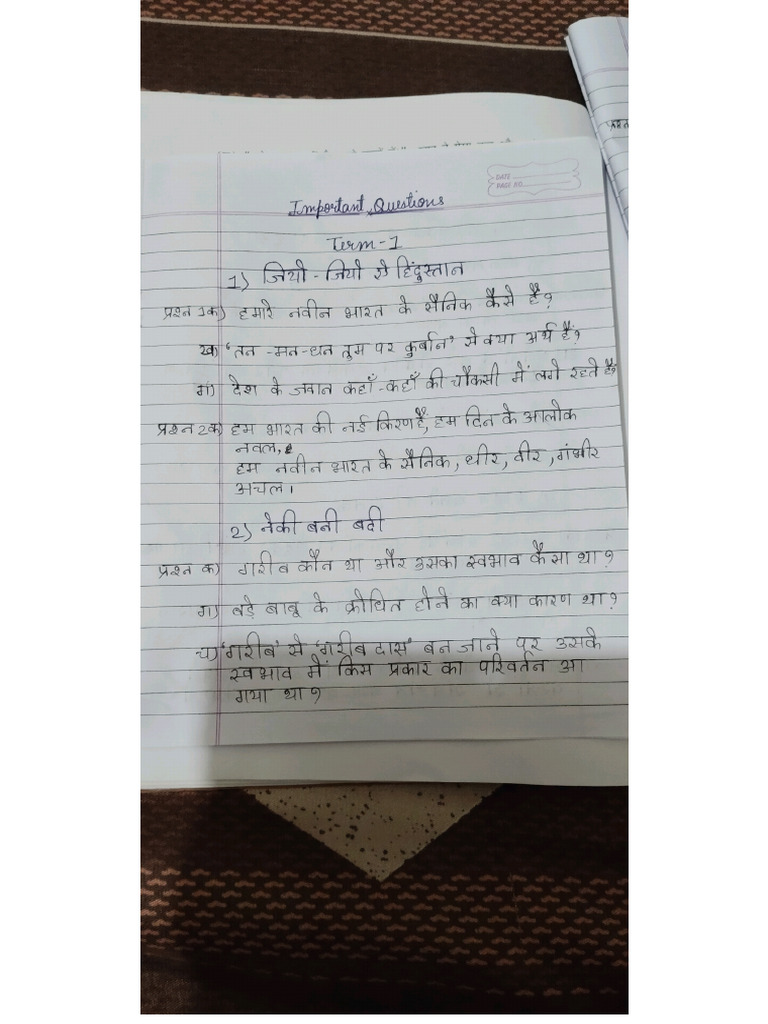 DATE
PAGE NO.
Important Questions
Term-1
1) जियो-जियो ऐ हिंदुस्तान
प्रश्न 1क) हमारे नवीन भारत के सैनिक कैसे है?
ख) 'तन-मन-धन तुम पर कुर्बान' से क्या अर्थ है?
ग) देश के जवान कहाँ-कहाँ की चौकसी में लगे रहते है?
प्रश्न 2क) हम भारत की नई किरण है, हम दिन के आलोक
नवल,
हम नवीन भारत के सैनिक, धीर, वीर, गंभीर
अचल।
2) नेकी बनी बदी
प्रश्न क) गरीब कौन था और उसका स्वभाव कैसा था?
ग) बड़े बाबू के क्रोधित होने का क्या कारण था?
च) 'गरीब' से 'गरीब दास' बन जाने पर उसके
स्वभाव में किस प्रकार का परिवर्तन आ
गया था?